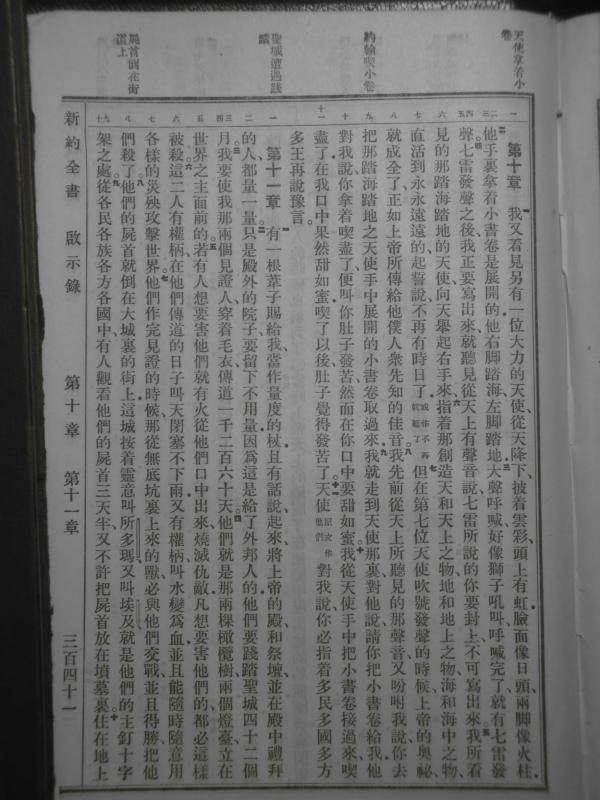 天使拿着小卷
約翰喫小卷
聖城遭遇踐踏
屍首倒在街道上
第十章 我又看見另有一位大力的天使、從天降下、披着雲彩、頭上有虹、臉面像日頭、兩脚像火柱、
他手裏拿着小書卷是展開的、他右脚踏海、左脚踏地、大聲呼喊、好像獅子吼叫、呼喊完了、就有七雷發
聲、七雷發聲之後、我正要寫出來、就聽見從天上有聲音說、七雷所說的你要封上、不可寫出來、我所看
見的那踏海踏地的天使、向天舉起右手來、指着那創造天和天上之物、地和地上之物、海和海中之物、
直活到永永遠遠的、起誓說、不再有時日了、或作不再耽延了但在第七位天使吹號發聲的時候、上帝的奧祕、
就成全了、正如上帝所傳給他僕人衆先知的佳音、我先前從天上所聽見的那聲音、又吩咐我說、你去
把那踏海踏地之天使手中展開的小書卷取過來、我就走到天使那裏、對他說、請你把小書卷給我、他
對我說、你拿着喫盡了、便叫你肚子發苦、然而在你口中要甜如蜜、我從天使手中把小書卷接過來、喫
盡了、在我口中果然甜如蜜、喫了以後、肚子覺得發苦了、天使原文作他們對我說、你必指着多民多國多方
多王再說豫言、
第十一章 有一根葦子賜給我、當作量度的杖、且有話說、起來、將上帝的殿、和祭壇、並在殿中禮拜
的人、都量一量、只是殿外的院子、要留下不用量、因爲這是給了外邦人的、他們要踐踏聖城四十二個
月、我要使我那兩個見證人、穿着毛衣、傳道一千二百六十天、他們就是那兩棵橄欖樹、兩個燈臺、立在
世界之主面前的、若有人想要害他們、就有火從他們口中出來、燒滅仇敵、凡想要害他們的、都必這樣
被殺、這二人有權柄、在他們傳道的日子、叫天閉塞不下雨、又有權柄、叫水變爲血、並且能隨時隨意用
各樣的災殃攻擊世界、他們作完見證的時候、那從無底坑裏上來的獸、必與他們交戰、並且得勝、把他
們殺了、他們的屍首就倒在大城裏的街上、這城按着靈意叫所多瑪、又叫埃及、就是他們的主釘十字
架之處、從各民各族各方各國中、有人觀看他們的屍首三天半、又不許把屍首放在墳墓裏、住在地上
新約全書 啟示錄 第十章 第十一章 三百四十一